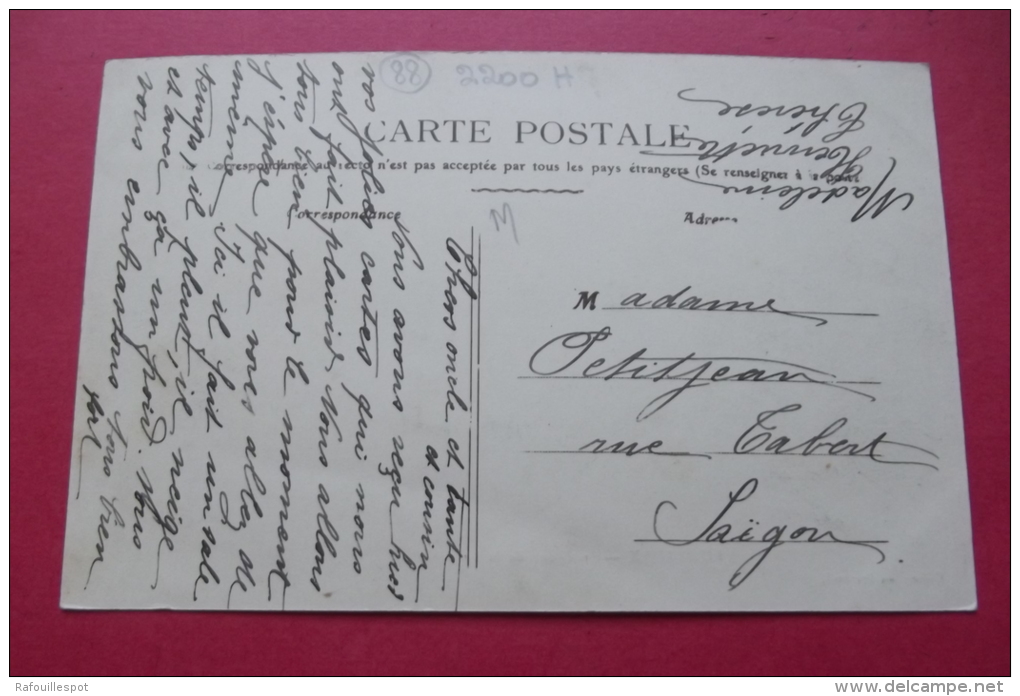 88
2200 H
CARTE POSTALE
Correspondance au recto n'est pas acceptée par tous les pays étrangers (Se renseigner à la poste
Correspondance
Adresse
M
Chers oncle et tante
et cousin
Nous avons reçu hier
vos jolies cartes qui nous
ont fait plaisir. Nous allons
tous bien pour le moment
J'éspère que vous allez de
meme. Ici il fait un sale
temps, il pleut, il neige
et avec ça un froid. Nous
vous embrassons tous bien
fort
Madeleine
Henriette
Thérèse
Madame
Petitjean
rue Tabert
Saïgon
Rafouillespot
www.delcampe.net